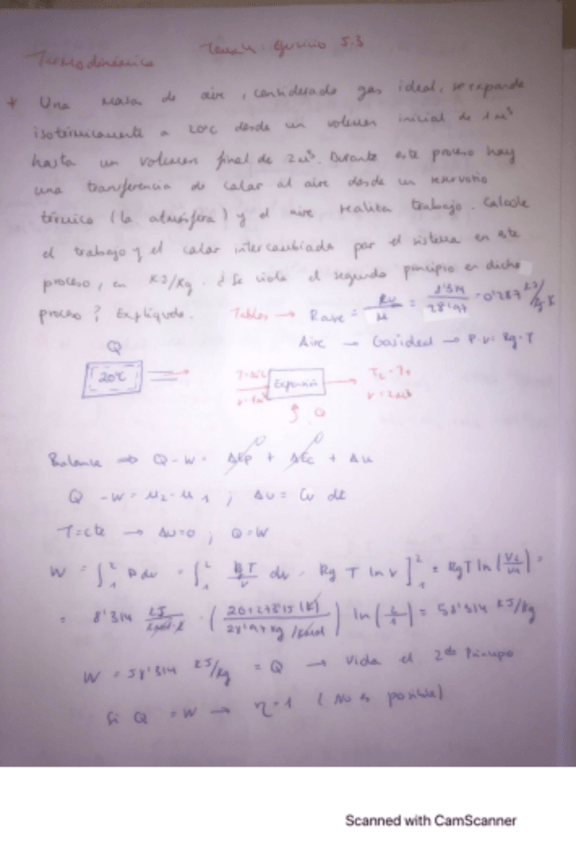 Termodinámica Tema 4. Ejercicio 5.3
* Una masa de aire, considerado gas ideal, se expande
isotérmicamente a 20ºC desde un volumen inicial de 1 m³
hasta un volumen final de 2 m³. Durante este proceso hay
una transferencia de calor al aire desde un reservorio
térmico (la atmósfera) y el aire realiza trabajo. Calcule
el trabajo y el calor intercambiado por el sistema en este
proceso, en KJ/Kg. ¿Se viola el segundo principio en dicho
proceso? Explíquelo. Tablas → Raire = Ru/M = 8'314/28'97 = 0'287 KJ/Kg·K
Aire → Gas ideal → P·v = Rg·T
Q
20ºC
Expansión
Q
Balance → Q - W = ΔEp + ΔEc + Δu
Q - W = u2 - u1 ; Δu = Cv dt
T = cte → Δu = 0 ; Q = W
W = ∫₁² P dv = ∫₁² RgT/v dv = Rg T ln v ]₁² = RgT ln (v2/v1) =
= 8'314 KJ/Kmol·K · (20+273'15 (K) / 28'97 Kg/Kmol) ln (2/1) = 58'314 KJ/Kg
W = 58'314 KJ/Kg = Q → Viola el 2do Principio
Si Q = W → η = 1 (No es posible)
Scanned with CamScanner